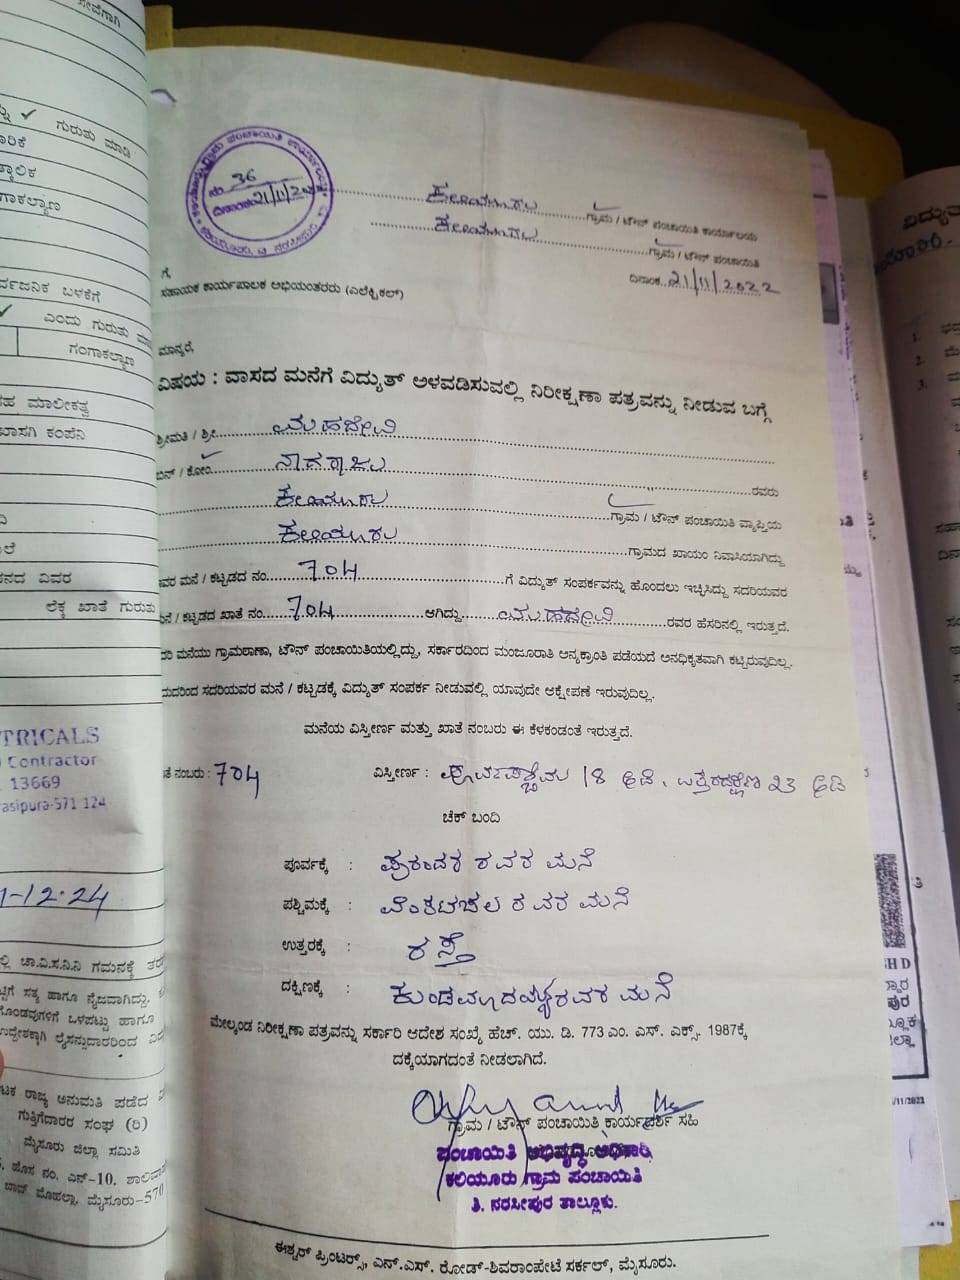 ಸೇವೆಗಾಗಿ
✓ ಗುರುತು ಮಾಡಿ
ಗಂಗಾಕಲ್ಯಾಣ
ಎಂದು ಗುರುತು
ಗಂಗಾಕಲ್ಯಾಣ
ಮಾಲೀಕತ್ವ
ಖಾಸಗಿ ಕಂಪೆನಿ
ವಿವರ
ಲೆಕ್ಕ ಖಾತೆ ಗುರುತು
TRICALS
Contractor
13669
asipura-571 124
1-12-24
ಚಾ.ವಿ.ಸ.ನಿ.ನಿ ಗಮನಕ್ಕೆ
ಸತ್ಯ ಹಾಗೂ ನೈಜವಾಗಿದ್ದು,
ಒಳಪಟ್ಟು ಹಾಗೂ
ಲೈಸನ್ಸುದಾರರಿಂದ
ರಾಜ್ಯ ಅನುಮತಿ ಪಡೆದ
ಗುತ್ತಿಗೆದಾರರ ಸಂಘ (ರಿ)
ಮೈಸೂರು ಜಿಲ್ಲಾ ಸಮಿತಿ
ಹೊಸ ನಂ. ಎನ್-10,
ಮೊಹಲ್ಲಾ, ಮೈಸೂರು-570
ನಂ 36
ದಿನಾಂಕ 21/11/2022
ಕಲಿಯೂರು ಗ್ರಾಮ / ಟೌನ್ ಪಂಚಾಯಿತಿ ಕಾರ್ಯಾಲಯ
ಕಲಿಯೂರು ಗ್ರಾಮ / ಟೌನ್ ಪಂಚಾಯಿತಿ
ದಿನಾಂಕ 21/11/2022
ಗೆ,
ಸಹಾಯಕ ಕಾರ್ಯಪಾಲಕ ಅಭಿಯಂತರರು (ಎಲೆಕ್ಟ್ರಿಕಲ್)
ಮಾನ್ಯರೆ,
ವಿಷಯ : ವಾಸದ ಮನೆಗೆ ವಿದ್ಯುತ್ ಅಳವಡಿಸುವಲ್ಲಿ ನಿರೀಕ್ಷಣಾ ಪತ್ರವನ್ನು ನೀಡುವ ಬಗ್ಗೆ
ಶ್ರೀಮತಿ / ಶ್ರೀ ಮಹದೇವಿ
ಬಿನ್ / ಕೋಂ ನಾಗರಾಜು ರವರು
ಕಲಿಯೂರು ಗ್ರಾಮ / ಟೌನ್ ಪಂಚಾಯಿತಿ ವ್ಯಾಪ್ತಿಯ
ಕಲಿಯೂರು ಗ್ರಾಮದ ಖಾಯಂ ನಿವಾಸಿಯಾಗಿದ್ದು
ವರ ಮನೆ / ಕಟ್ಟಡದ ನಂ. 704 ಗೆ ವಿದ್ಯುತ್ ಸಂಪರ್ಕವನ್ನು ಹೊಂದಲು ಇಚ್ಛಿಸಿದ್ದು ಸದರಿಯವರ
ಮನೆ / ಕಟ್ಟಡದ ಖಾತೆ ನಂ. 704 ಆಗಿದ್ದು ಮಹದೇವಿ ರವರ ಹೆಸರಿನಲ್ಲಿ ಇರುತ್ತದೆ.
ಮನೆಯು ಗ್ರಾಮಠಾಣಾ, ಟೌನ್ ಪಂಚಾಯಿತಿಯಲ್ಲಿದ್ದು, ಸರ್ಕಾರದಿಂದ ಮಂಜೂರಾತಿ ಅನ್ಯಕ್ರಾಂತಿ ಪಡೆಯದೆ ಅನಧಿಕೃತವಾಗಿ ಕಟ್ಟಿರುವುದಿಲ್ಲ.
ಸದರಿಯವರ ಮನೆ / ಕಟ್ಟಡಕ್ಕೆ ವಿದ್ಯುತ್ ಸಂಪರ್ಕ ನೀಡುವಲ್ಲಿ ಯಾವುದೇ ಆಕ್ಷೇಪಣೆ ಇರುವುದಿಲ್ಲ.
ಮನೆಯ ವಿಸ್ತೀರ್ಣ ಮತ್ತು ಖಾತೆ ನಂಬರು ಈ ಕೆಳಕಂಡಂತೆ ಇರುತ್ತದೆ.
ನಂಬರು : 704 ವಿಸ್ತೀರ್ಣ : ಪೂರ್ವಪಶ್ಚಿಮ 18 ಅಡಿ, ಉತ್ತರದಕ್ಷಿಣ 23 ಅಡಿ
ಚೆಕ್ ಬಂದಿ
ಪೂರ್ವಕ್ಕೆ : ಪುರಂದರ ರವರ ಮನೆ
ಪಶ್ಚಿಮಕ್ಕೆ : ವೆಂಕಟಾಚಲ ರವರ ಮನೆ
ಉತ್ತರಕ್ಕೆ : ರಸ್ತೆ
ದಕ್ಷಿಣಕ್ಕೆ : ರವರ ಮನೆ
ಮೇಲ್ಕಂಡ ನಿರೀಕ್ಷಣಾ ಪತ್ರವನ್ನು ಸರ್ಕಾರಿ ಆದೇಶ ಸಂಖ್ಯೆ ಹೆಚ್. ಯು. ಡಿ. 773 ಎಂ. ಎಸ್. ಎಕ್ಸ್. 1987ಕ್ಕೆ
ದಕ್ಕೆಯಾಗದಂತೆ ನೀಡಲಾಗಿದೆ.
ಗ್ರಾಮ / ಟೌನ್ ಪಂಚಾಯಿತಿ ಕಾರ್ಯದರ್ಶಿ ಸಹಿ
ಪಂಚಾಯಿತಿ ಅಭಿವೃದ್ಧಿ ಅಧಿಕಾರಿ
ಕಲಿಯೂರು ಗ್ರಾಮ ಪಂಚಾಯಿತಿ
ತಿ. ನರಸೀಪುರ ತಾಲ್ಲೂಕು.
ಈಶ್ವರ್ ಪ್ರಿಂಟರ್ಸ್, ಎನ್.ಎಸ್. ರೋಡ್-ಶಿವರಾಂಪೇಟೆ ಸರ್ಕಲ್, ಮೈಸೂರು.
1.
2.
3.
H D
/11/2022